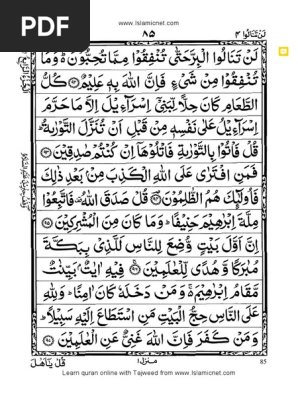 PDF
www.Islamicnet.com
لن تنالوا ۴
۸۵
لَنْ تَنَالُوا الْبِرَّ حَتّٰى تُنْفِقُوْا مِمَّا تُحِبُّوْنَ ۬ؕ وَمَا
تُنْفِقُوْا مِنْ شَیْءٍ فَاِنَّ اللّٰهَ بِهٖ عَلِیْمٌ ﴿۹۲﴾ كُلُّ
الطَّعَامِ كَانَ حِلًّا لِّبَنِیْۤ اِسْرَآءِیْلَ اِلَّا مَا حَرَّمَ
اِسْرَآءِیْلُ عَلٰى نَفْسِهٖ مِنْ قَبْلِ اَنْ تُنَزَّلَ التَّوْرٰىةُ ؕ
قُلْ فَاْتُوْا بِالتَّوْرٰىةِ فَاتْلُوْهَاۤ اِنْ كُنْتُمْ صٰدِقِیْنَ ﴿۹۳﴾
فَمَنِ افْتَرٰى عَلَى اللّٰهِ الْكَذِبَ مِنْۢ بَعْدِ ذٰلِكَ
فَاُولٰٓئِكَ هُمُ الظّٰلِمُوْنَ ﴿۹۴﴾ قُلْ صَدَقَ اللّٰهُ ۟ فَاتَّبِعُوْا
مِلَّةَ اِبْرٰهِیْمَ حَنِیْفًا ؕ وَمَا كَانَ مِنَ الْمُشْرِكِیْنَ ﴿۹۵﴾
اِنَّ اَوَّلَ بَیْتٍ وُّضِعَ لِلنَّاسِ لَلَّذِیْ بِبَكَّةَ
مُبٰرَكًا وَّهُدًى لِّلْعٰلَمِیْنَ ﴿۹۶﴾ فِیْهِ اٰیٰتٌۢ بَیِّنٰتٌ
مَّقَامُ اِبْرٰهِیْمَ ۬ۚ وَمَنْ دَخَلَهٗ كَانَ اٰمِنًا ؕ وَلِلّٰهِ
عَلَى النَّاسِ حِجُّ الْبَیْتِ مَنِ اسْتَطَاعَ اِلَیْهِ سَبِیْلًا ؕ
وَمَنْ كَفَرَ فَاِنَّ اللّٰهَ غَنِیٌّ عَنِ الْعٰلَمِیْنَ ﴿۹۷﴾
قُلْ یٰۤاَهْلَ
منزل ۱
85
Learn quran online with Tajweed from www.Islamicnet.com